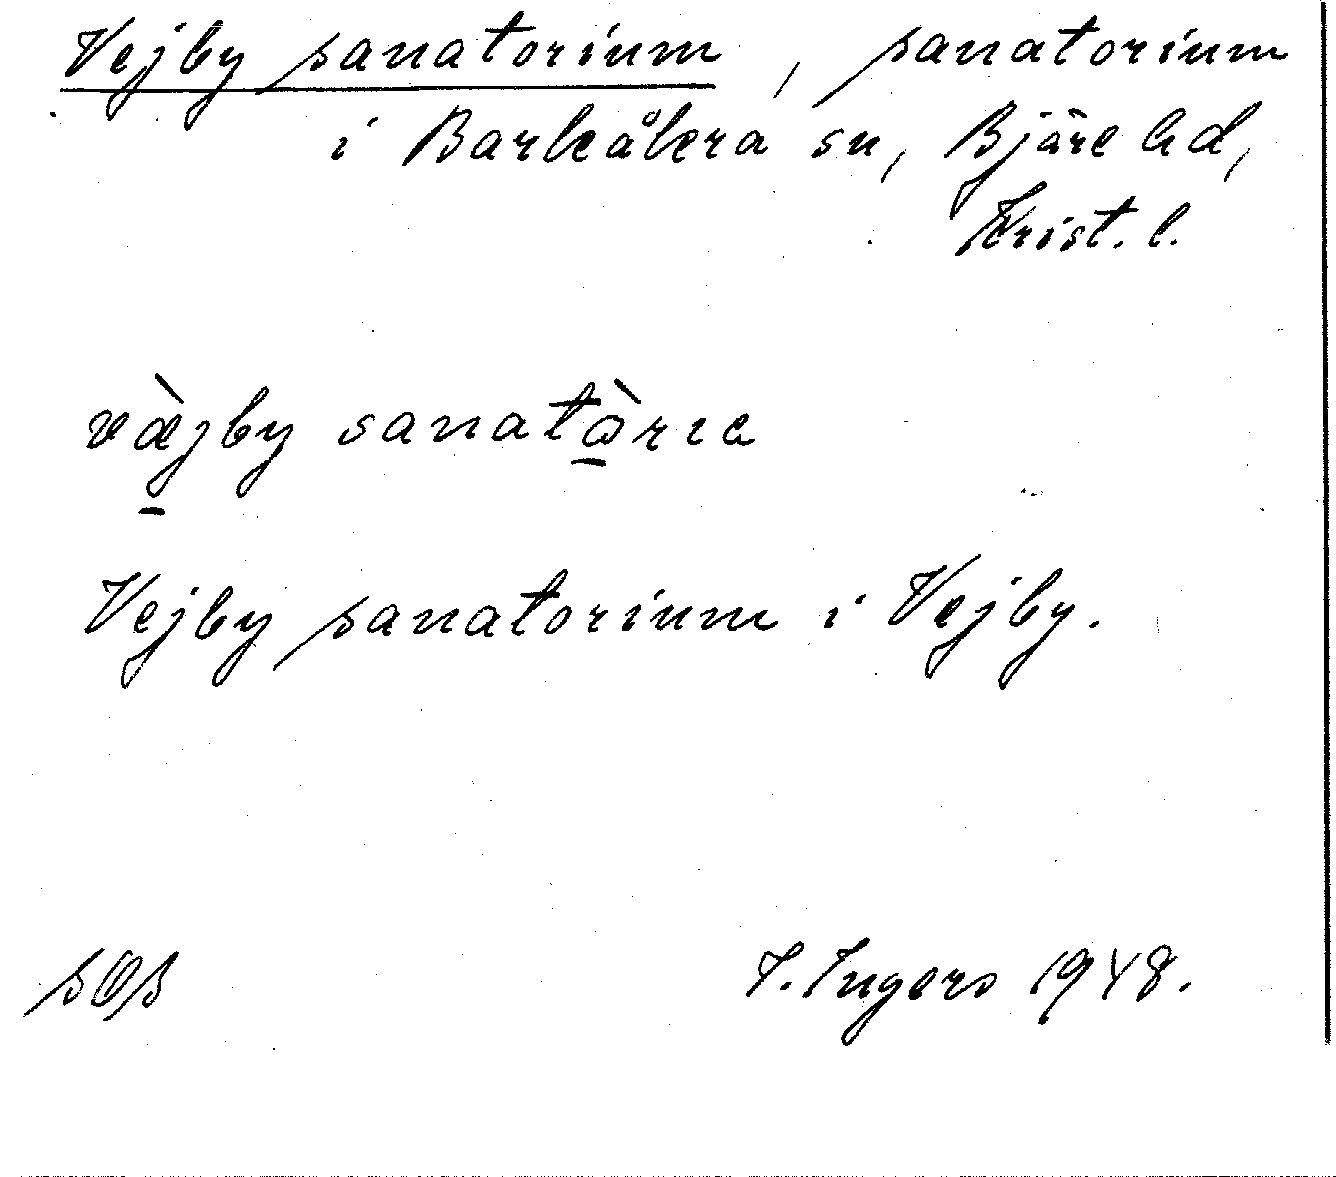 Vejby sanatorium, sanatorium
i Barkåkra sn, Bjäre hd,
Krist. l.
væ̀jby sanatɷ̀rıe
Vejby sanatorium i Vejby.
I. Ingers 1948.